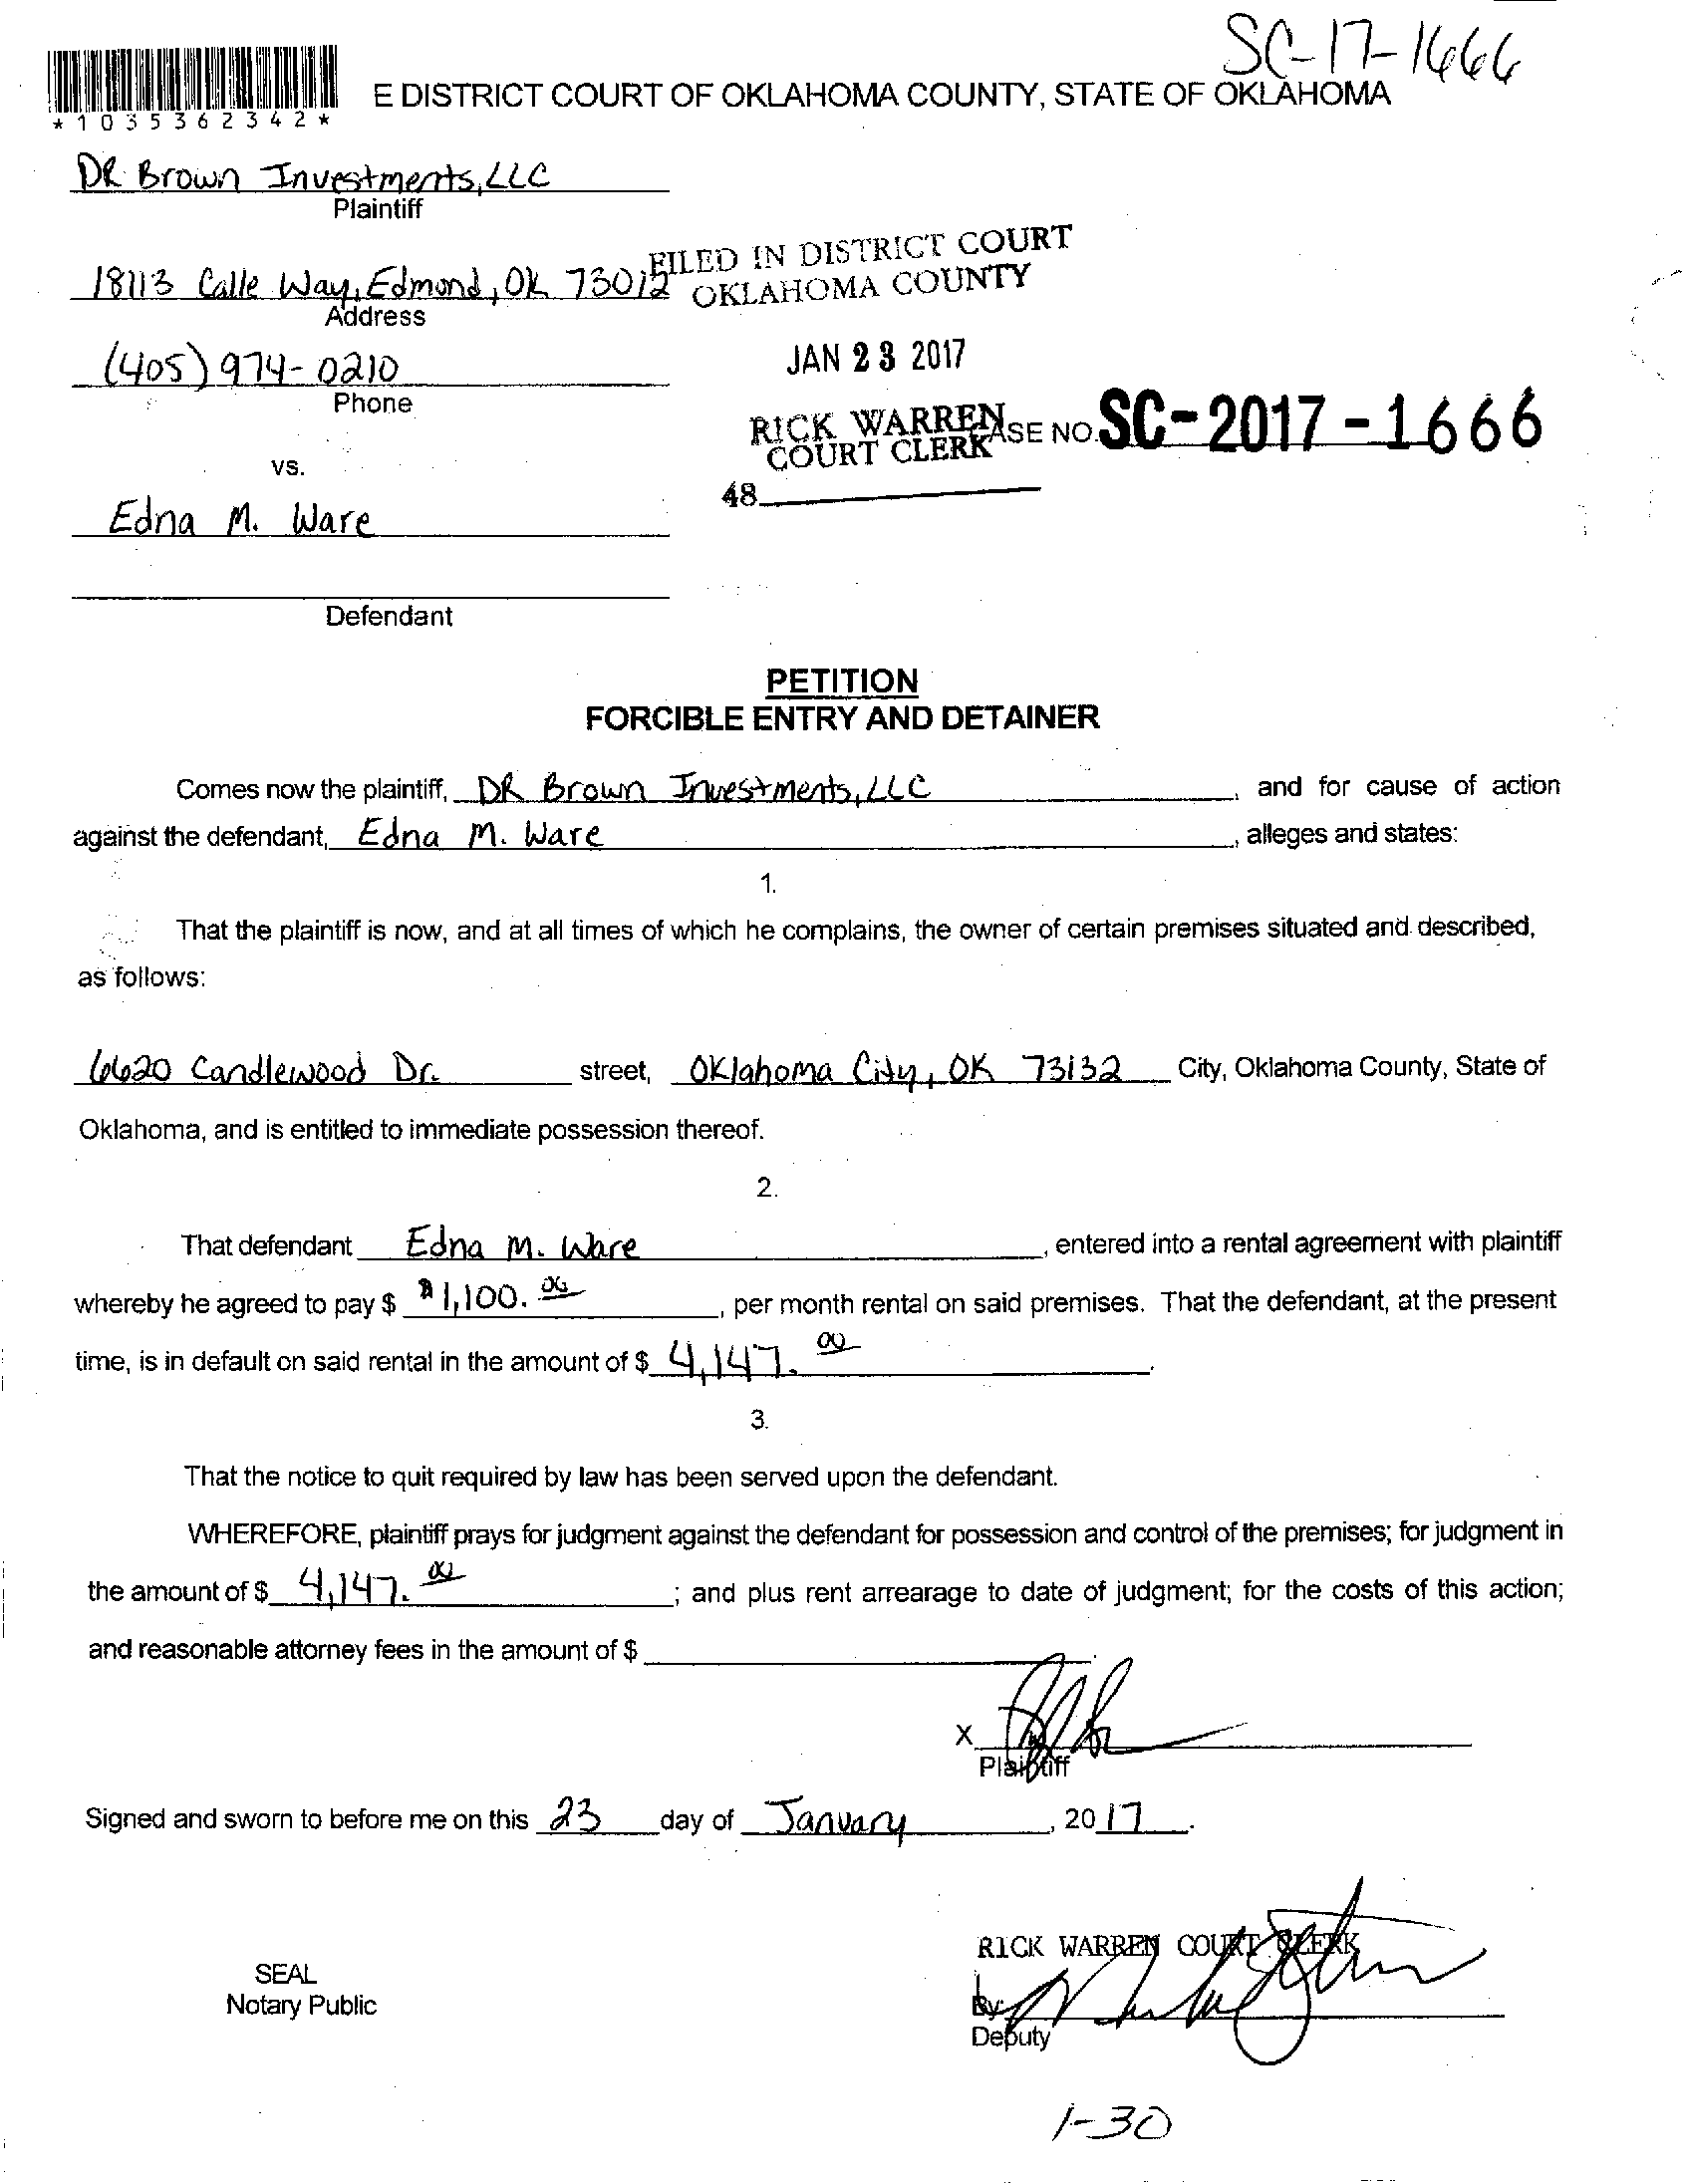 SC-17-1666
E DISTRICT COURT OF OKLAHOMA COUNTY, STATE OF OKLAHOMA
*1035362342*
DR Brown Investments, LLC
Plaintiff
18113 Calle Way, Edmond, OK 73012
Address
FILED IN DISTRICT COURT
OKLAHOMA COUNTY
(405) 974-0210
Phone
JAN 23 2017
RICK WARREN
COURT CLERK
ASE NO. SC-2017-1666
48
vs.
Edna M. Ware
Defendant
PETITION
FORCIBLE ENTRY AND DETAINER
Comes now the plaintiff, DR Brown Investments, LLC, and for cause of action
against the defendant, Edna M. Ware, alleges and states:
1.
That the plaintiff is now, and at all times of which he complains, the owner of certain premises situated and described,
as follows:
6620 Candlewood Dr. street, Oklahoma City, OK 73132 City, Oklahoma County, State of
Oklahoma, and is entitled to immediate possession thereof.
2.
That defendant Edna M. Ware, entered into a rental agreement with plaintiff
whereby he agreed to pay $ $1,100.00, per month rental on said premises. That the defendant, at the present
time, is in default on said rental in the amount of $ 4,147.00.
3.
That the notice to quit required by law has been served upon the defendant.
WHEREFORE, plaintiff prays for judgment against the defendant for possession and control of the premises; for judgment in
the amount of $ 4,147.00; and plus rent arrearage to date of judgment; for the costs of this action;
and reasonable attorney fees in the amount of $ .
X
Plaintiff
Signed and sworn to before me on this 23 day of January, 2017.
RICK WARREN COURT CLERK
SEAL
Notary Public
By:
Deputy
1-30